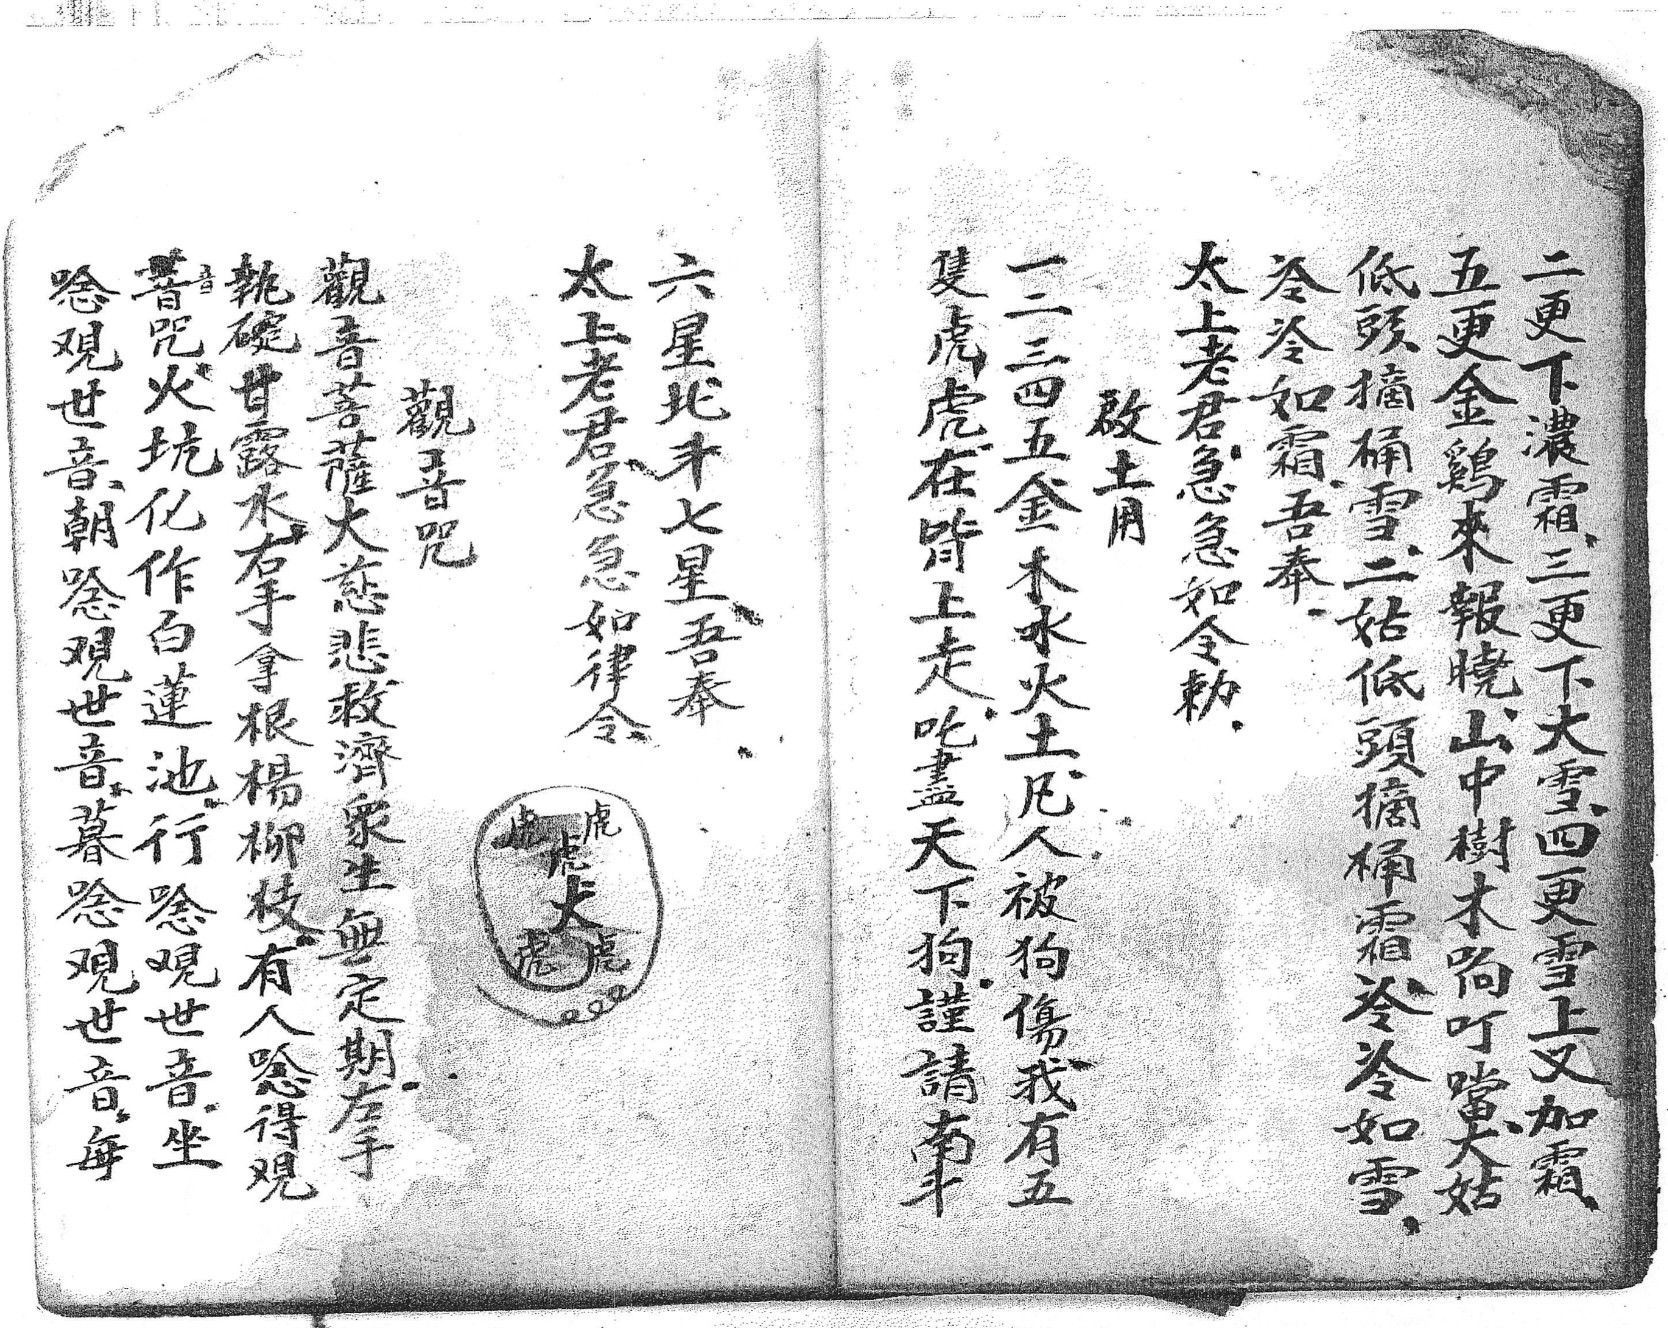 二更下濃霜、三更下大雪、四更雪上又加霜、
五更金鷄來報曉、山中樹木响叮噹、大姑
低頭摘桶雪、二姑低頭摘桶霜、冷冷如雪、
冷冷如霜、吾奉、
太上老君、急急如令勅、
啟土用
一二三四五、金木水火土、凡人被狗傷、我有五
隻虎、虎在背上走、叱盡天下狗、謹請南斗
六星北斗七星、吾奉、
太上老君、急急如律令、
虎 虎
虎
犬
虎 虎
觀音咒
觀音菩薩大慈悲救濟衆生無定期、左手
執碗甘露水、右手拿根楊柳枝、有人唸得觀
音
菩咒、火坑化作白蓮池、行唸观世音、坐
唸观世音、朝唸观世音、暮唸观世音、每